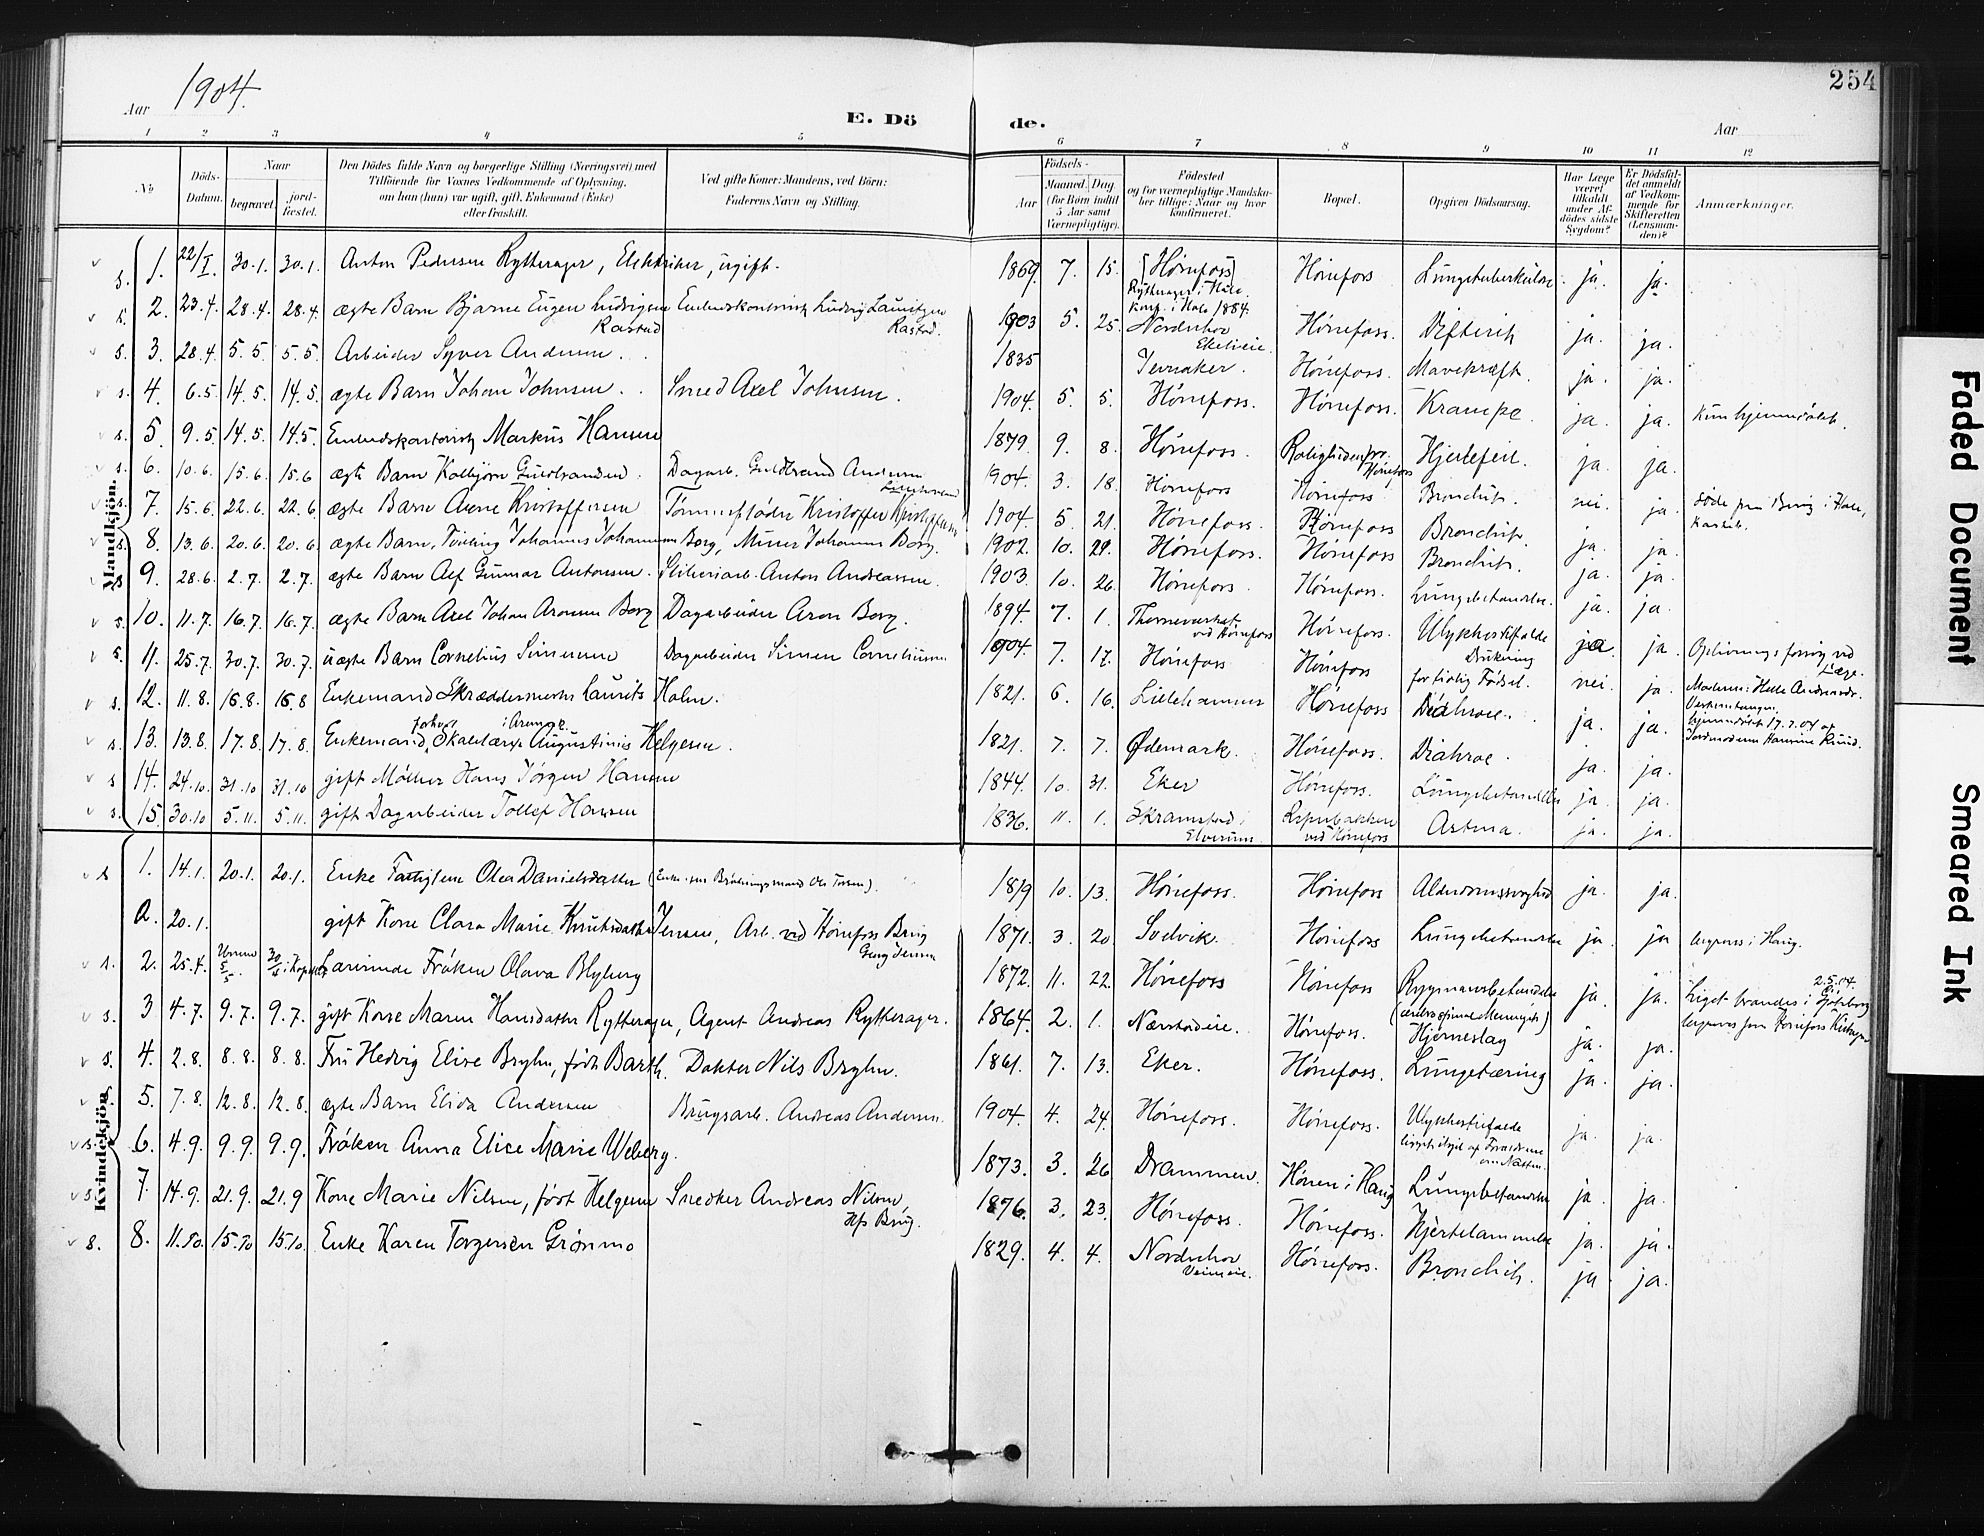 1904.
254
Aar
E. Dö de.
Aar
1 2 3 4 5 6 7 8 9 10 11 12
No
Döds-Datum.
Naar
begravet.
jord-fæstet.
Den Dödes fulde Navn og borgerlige Stilling (Næringsvei) med Tilföiende for Voxnes Vedkommende af Oplysning, om han (hun) var ugift, gift, Enkemand (Enke) eller fraskilt.
Ved gifte Koner: Mandens, ved Börn: Faderens Navn og Stilling.
Födsels-
Aar
Maaned. Dag.
(for Börn indtil 5 Aar samt Værnepligtige).
Födested og for værnepligtige Mandskaber tillige: Naar og hvor konfirmeret.
Bopæl.
Opgiven Dödsaarsag.
Har Læge været tilkaldt under Afdödes sidste Sygdom?
Er Dödsfaldet anmeldt af Vedkommende for Skifteretten (Lensmanden)?
Anmærkninger.
Mandkjön.
s. 1. 22/I. 30.1. 30.1. Anton Pedersen Rytterager, Elektriker, ugift. 1869. 7. 15. [Hønefoss] Rytterager i Hole. Konf. i Hole 1884. Hønefoss Lungetuberkulose ja. ja.
s. 2. 23.4. 28.4. 28.4. ægte Barn Bjarne Eugen Ludvigsen Rastad Embedskontorist Ludvig Lauritzen Rastad. 1903 5. 25. Norderhov Ekelieie. Hønefoss. Difterit ja. ja.
s. 3. 28.4. 5.5. 5.5. Arbeider Syver Andersen. 1835 Jevnaker. Hønefoss. Mavekræft. ja. ja.
s. 4. 6.5. 14.5. 14.5. ægte Barn Johan Johnsen. Smed Axel Johnsen. 1904. 5. 5. Hønefoss. Hønefoss. Krampe ja. ja. Kun hjemmedøbt.
s. 5. 9.5. 14.5. 14.5. Embedskontorist Markus Hansen 1879. 9. 8. Hønefoss. Roligheden pr. Hønefoss Hjertefeil. ja. ja.
s. 6. 10.6. 15.6. 15.6 ægte Barn Kolbjørn Guldbrandsen. Dagarb. Guldbrand Andersen 1904. 3. 18. Hønefoss Hønefoss Bronchit. nei. ja. døde paa Berg i Hole,
7. 15.6. 22.6. 22.6. ægte Barn Arne Kristoffersen Tømmerfløder Kristoffer Kristoffersen 1904. 5. 21. Hønefoss. Hønefoss Bronchit. ja. ja.
s. 8. 13.6. 20.6. 20.6. ægte Barn, Tvilling Johannes Johannessen Borg, Minér Johannes Borg. 1902. 10. 29. Hønefoss. Hønefoss Bronchit. ja. ja.
9. 28.6. 2.7. 2.7. ægte Barn Alf Gunnar Antonsen. Sliberiarb. Anton Andreassen. 1903. 10. 26. Hønefoss. Hønefoss. Lungebetændelse. ja. ja.
s. 10. 11.7. 16.7. 16.7. ægte Barn Axel Johan Aronsen Borg Dagarbeider Aron Borg. 1894. 7. 1. ved Hønefoss Hønefoss. Ulykkestilfælde Drukning ja. ja. Oplivningsforsøg ved Læge.
s. 11. 25.7. 30.7. 30.7. uægte Barn Cornelius Simensen Dagarbeider Simen Corneliussen 1904. 7. 17. Hønefoss Hønefoss for tidlig Fødsel. nei. ja. Moderen: Helle Andersdr. hjemmedøbt 17.7.04 af Jordmoderen Hansine Ruud.
s. 12. 11.8. 16.8. 16.8 Enkemand Skræddermester Laurits Holm. 1821. 6. 16. Lillehammer Hønefoss Diahroe. ja. ja.
s. 13. 13.8. 17.8. 17.8. Enkemand, forhv. Skolelærer i Aremark Augustinus Helgesen. 1821. 7. 7. Ødemark. Hønefoss. Diahroe. ja. ja.
s 14. 24.10. 31.10 31.10 gift Møller Hans Jørgen Hansen 1844. 10. 31. Eker Hønefoss. Lungebetændelse ja. ja.
s. 15. 30.10 5.11. 5.11. gift Dagarbeider Tollef Hansen 1836. 11. 1. Skramstad i Elverum. Espebakken ved Hønefoss Astma. ja. ja.
Kvindekjön.
s 1. 14.1. 20.1. 20.1. Enke Fattiglem Olea Danielsdatter 1819 10. 13. Hønefoss. Hønefoss Alderdomssvaghed ja. ja.
a. 20.1. gift Kone Clara Marie Knutsdatter Jensen, Arb. ved Hønefoss Brug Georg Jensen 1871. 3. 20 Sodvik. Hønefoss Lungebetændelse ja. ja begraves i Haug.
s. 2. 25.4. Urnen 5/5 Lærerinde Frøken Olava Blyberg 1872. 11. 22. Hønefoss Hønefoss Rygmarvsbetændelse (cerebrospinal Meningit) ja. ja. Liget brændes i Göteborg 2.5.04. begraves paa Hønefoss Kirkegaard
s. 3 4.7. 9.7. 9.7. gift Kone Maren Hansdatter Rytterager, Agent Andreas Rytterager. 1864. 2. 1. Nærstadeie. Hønefoss. Hjerneslag ja. ja.
s. 4. 2.8. 8.8. 8.8. Fru Hedvig Elise Bryhn, født Barth. Doktor Nils Bryhn. 1861. 7. 13. Eker. Hønefoss. Lungetæring ja. ja.
5. 7.8. 12.8. 12.8. ægte Barn Elida Andersen Brugsarb. Andreas Andersen. 1904. 4. 24. Hønefoss. Hønefoss. Ulykkestilfælde ligget ihjel af Forældrene om Natten. ja. ja.
s. 6. 4.9. 9.9. 9.9. Frøken Anna Elise Marie Weberg. 1873. 3. 26 Drammen. Hønen i Haug Lungebetændelse ja. ja.
s. 7. 14.9. 21.9. 21.9 Kone Marie Nilsen, født Helgesen Snedker Andreas Nilsen, Hfs Brug. 1876. 3. 23. Hønefoss. Hønefoss. Hjertelammelse ja. ja.
s. 8. 11.10. 15.10 15.10. Enke Karen Torgersen Grønmo 1829. 4. 4. Norderhov Veieneie. Hønefoss. Bronchit. ja. ja.
Faded Document
Smeared Ink